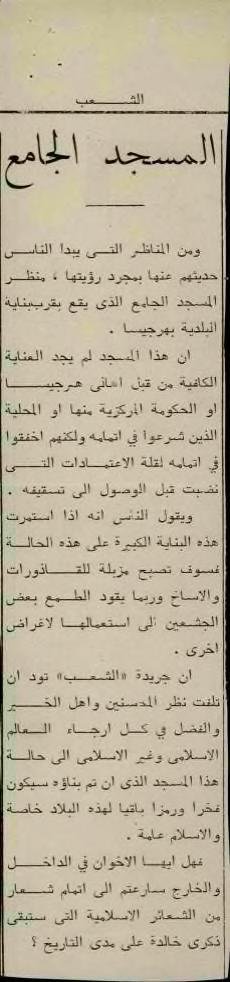 الشعب
المسجد الجامع
ومن المناظر التي يبدا الناس
حديثهم عنها بمجرد رؤيتها ، منظر
المسجد الجامع الذى يقع بقرب بناية
البلدية بهرجيسا .
ان هذا المسجد لم يجد العناية
الكافية من قبل اهالى هرجيسا
او الحكومة المركزية منها او المحلية
الذين شرعوا في اتمامه ولكنهم اخفقوا
في اتمامه لقلة الاعتمادات التى
نضبت قبل الوصول الى تسقيفه .
ويقول الناس انه اذا استمرت
هذه البناية الكبيرة على هذه الحالة
فسوف تصبح مزبلة للقاذورات
والاساخ وربما يقود الطمع بعض
الجشعين الى استعمالها لاغراض
اخرى .
ان جريدة «الشعب» تود ان
تلفت نظر المحسنين واهل الخير
والفضل في كل ارجاء العالم
الاسلامى وغير الاسلامى الى حالة
هذا المسجد الذى ان تم بناؤه سيكون
فخرا ورمزا باقيا لهذه البلاد خاصة
والاسلام عامة .
فهل ايها الاخوان في الداخل
والخارج سارعتم الى اتمام شعار
من الشعائر الاسلامية التى ستبقى
ذكرى خالدة على مدى التاريخ ؟